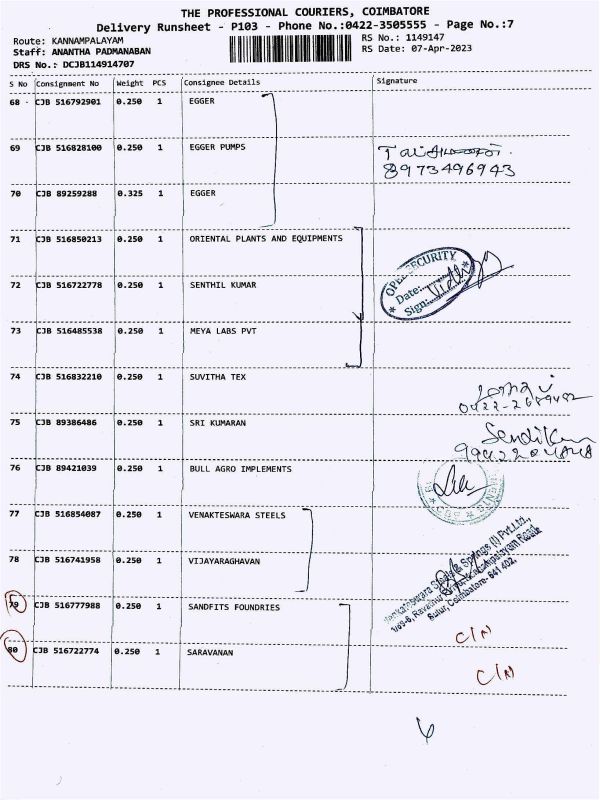 THE PROFESSIONAL COURIERS, COIMBATORE
Delivery Runsheet - P103 - Phone No.:0422-3505555 - Page No.:7
Route: KANNAMPALAYAM
RS No.: 1149147
Staff: ANANTHA PADMANABAN
RS Date: 07-Apr-2023
DRS No.: DCJB114914707
S No Consignment No Weight PCS Consignee Details Signature
68 CJB 516792901 0.250 1 EGGER
69 CJB 516828100 0.250 1 EGGER PUMPS
8973496943
70 CJB 89259288 0.325 1 EGGER
71 CJB 516850213 0.250 1 ORIENTAL PLANTS AND EQUIPMENTS
SECURITY
72 CJB 516722778 0.250 1 SENTHIL KUMAR
Date:
Sign:
73 CJB 516485538 0.250 1 MEYA LABS PVT
74 CJB 516832210 0.250 1 SUVITHA TEX
75 CJB 89386486 0.250 1 SRI KUMARAN
76 CJB 89421039 0.250 1 BULL AGRO IMPLEMENTS
77 CJB 516854087 0.250 1 VENAKTESWARA STEELS
Venkateswara Steels & Springs (I) Pvt.Ltd.,
78 CJB 516741958 0.250 1 VIJAYARAGHAVAN
Sulur, Coimbatore- 641 402.
79 CJB 516777988 0.250 1 SANDFITS FOUNDRIES
C/N
80 CJB 516722774 0.250 1 SARAVANAN
C/N